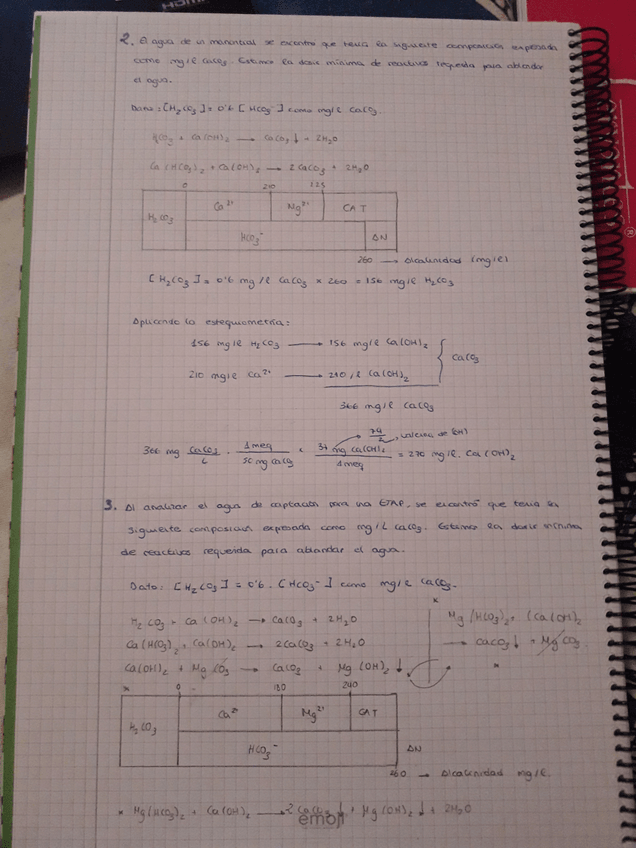 2. El agua de un manantial se encontro que tenia la siguiente composición expresada
como mg/l CaCO₃. Estimo la dosis mínima de reactivos requerida para ablandar
el agua.
Dato: [H₂CO₃] = 0'6 [HCO₃⁻] como mg/l CaCO₃
H₂CO₃ + Ca(OH)₂ → CaCO₃ ↓ + 2H₂O
Ca(HCO₃)₂ + Ca(OH)₂ → 2CaCO₃ + 2H₂O
0 210 225
H₂CO₃ Ca²⁺ Mg²⁺ CAT
HCO₃⁻ AN
260 → Alcalinidad (mg/l)
[H₂CO₃] = 0'6 mg/l CaCO₃ × 260 = 156 mg/l H₂CO₃
Aplicando la estequiometría:
156 mg/l H₂CO₃ → 156 mg/l Ca(OH)₂
CaCO₃
210 mg/l Ca²⁺ → 210 /l Ca(OH)₂
366 mg/l CaCO₃
74/2, valencia de (OH)
366 mg CaCO₃/L · 1 meq/50 mg CaCO₃ × 37 mg Ca(OH)₂/1 meq = 270 mg/l. Ca(OH)₂
3. Al analizar el agua de captación para una ETAP, se encontró que tenia la
siguiente composición expresada como mg/L CaCO₃. Estimo la dosis mínima
de reactivos requerida para ablandar el agua.
Dato: [H₂CO₃] = 0'6 · [HCO₃⁻] como mg/l CaCO₃.
H₂CO₃ + Ca(OH)₂ → CaCO₃ + 2H₂O
Ca(HCO₃)₂ + Ca(OH)₂ → 2CaCO₃ + 2H₂O
Ca(OH)₂ + MgCO₃ → CaCO₃ + Mg(OH)₂ ↓
*
Mg(HCO₃)₂ + (Ca(OH)₂
→ CaCO₃ ↓ + MgCO₃
*
* 0 180 240
H₂CO₃ Ca²⁺ Mg²⁺ CAT
HCO₃⁻ AN
260 → Alcalinidad mg/l.
* Mg(HCO₃)₂ + Ca(OH)₂ → 2CaCO₃ ↓ + Mg(OH)₂ ↓ + 2H₂O
emoji